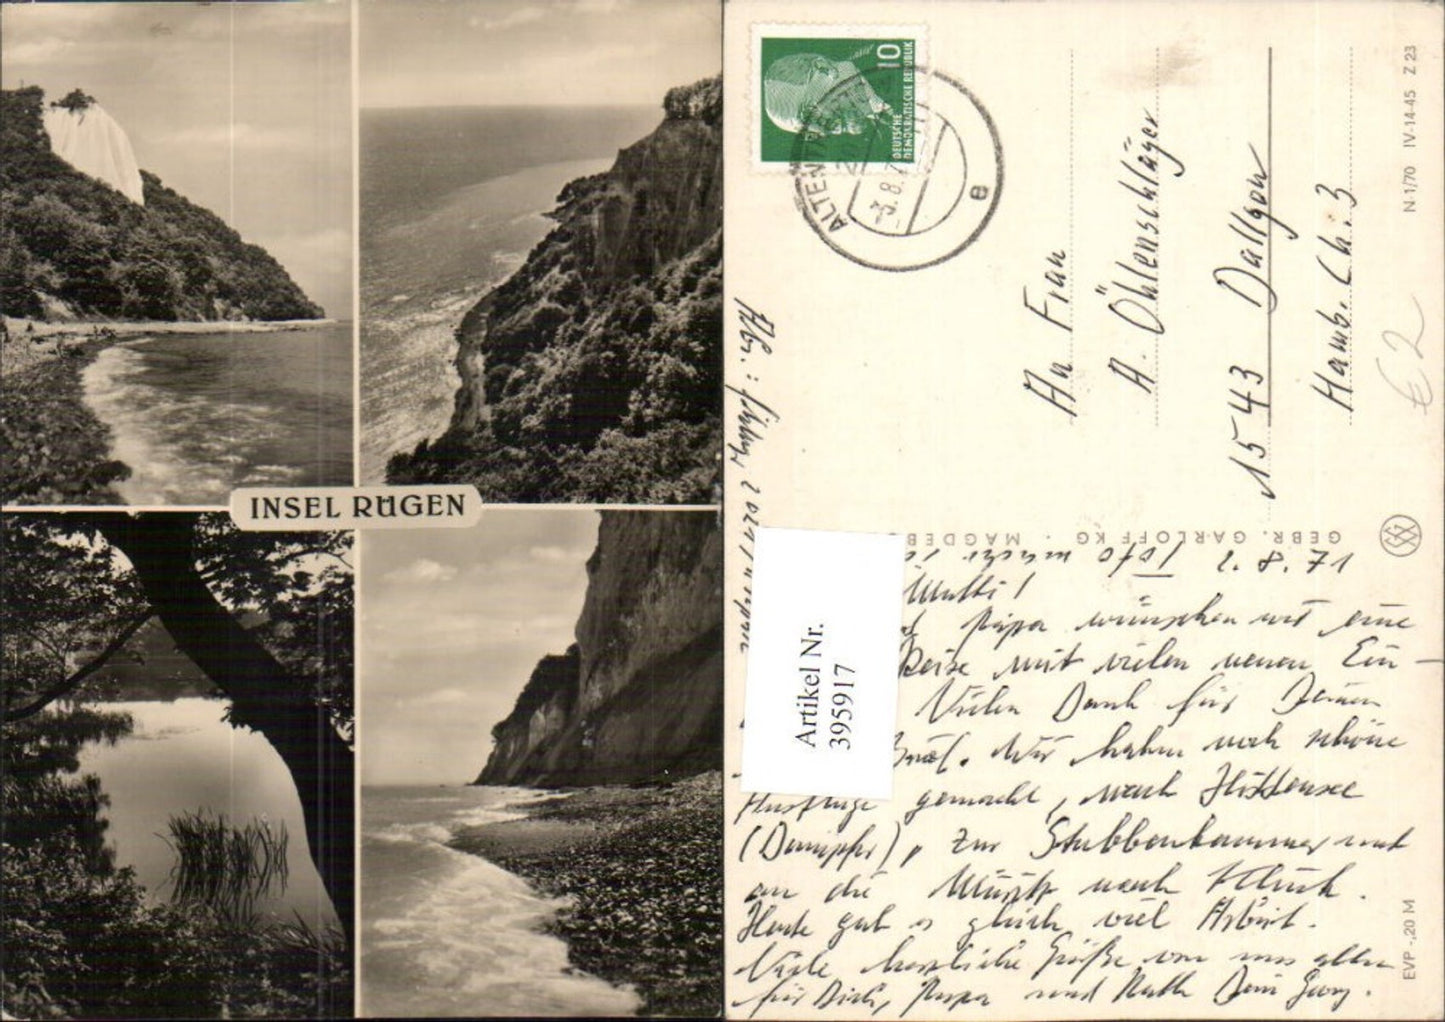 INSEL RÜGEN
10
DEUTSCHE
DEMOKRATISCHE REPUBLIK
ALTENTREPTOW
-3.8.71
e
An Frau
A. Öhlenschläger
1543 Dallgow
Hamb. Ch. 3
N 1/70 IV-14-45 Z 23
€ 2
GEBR. GARLOFF KG · MAGDEB
EVP -,20 M
Artikel Nr.
395917
Abs.:
2.8.71
Mutti!
Papa wünschen wir eine
Reise mit vielen neuen Ein-
Vielen Dank für Deinen
Brief. Wir haben noch schöne
Ausflüge gemacht, nach Hiddensee
(Dampfer), zur Stubbenkammer und
an die Müritz nach Klink.
Heute gab es gleich viel Arbeit.
Viele herzliche Grüße von uns allen
für Dich, Papa und Ruth Dein Georg.